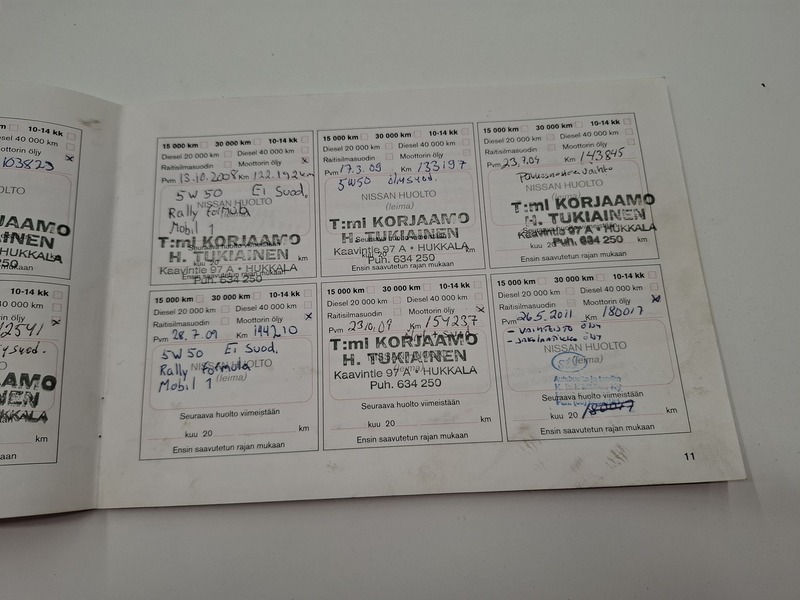 10-14 kk
Diesel 40 000 km
Moottorin öljy
103823
HUOLTO
KORJAAMO
TUKIAINEN
HUKKALA
250
mukaan
10-14 kk
40 000 km
öljy
12541
HUKKALA
km
mukaan
15 000 km 30 000 km 10-14 kk
Diesel 20 000 km Diesel 40 000 km
Raitisilmasuodin Moottorin öljy x
Pvm 13.10.2008 Km 122.192 km
5W50 Ei Suod.
NISSAN HUOLTO
Rally formula
(leima)
Mobil 1
T:mi KORJAAMO
H. TUKIAINEN
Seuraava huolto viimeistään
Kaavintie 97 A • HUKKALA
kuu 20 km
Puh. 634 250
Ensin saavutetun rajan mukaan
15 000 km 30 000 km 10-14 kk
Diesel 20 000 km Diesel 40 000 km
Raitisilmasuodin Moottorin öljy x
Pvm 17.3.09 Km 133197
5W50
NISSAN HUOLTO
(leima)
T:mi KORJAAMO
H. TUKIAINEN
Seuraava huolto viimeistään
Kaavintie 97 A • HUKKALA
kuu 20 km
Puh. 634 250
Ensin saavutetun rajan mukaan
15 000 km 30 000 km 10-14 kk
Diesel 20 000 km Diesel 40 000 km
Raitisilmasuodin Moottorin öljy
Pvm 23.7.09 Km 143845
NISSAN HUOLTO
(leima)
T:mi KORJAAMO
H. TUKIAINEN
Kaavintie 97 A • HUKKALA
kuu 20 km
Puh. 634 250
Ensin saavutetun rajan mukaan
15 000 km 30 000 km 10-14 kk
Diesel 20 000 km Diesel 40 000 km
Raitisilmasuodin Moottorin öljy x
Pvm 28.7.09 Km 144210
5W50 Ei Suod.
NISSAN HUOLTO
Rally formula
(leima)
Mobil 1
Seuraava huolto viimeistään
kuu 20 km
Ensin saavutetun rajan mukaan
15 000 km 30 000 km 10-14 kk
Diesel 20 000 km Diesel 40 000 km
Raitisilmasuodin Moottorin öljy x
Pvm 23.10.09 Km 154237
T:mi KORJAAMO
H. TUKIAINEN
Kaavintie 97 A • HUKKALA
Puh. 634 250
Seuraava huolto viimeistään
kuu 20 km
Ensin saavutetun rajan mukaan
15 000 km 30 000 km 10-14 kk
Diesel 20 000 km Diesel 40 000 km
Raitisilmasuodin Moottorin öljy x
Pvm 26.5.2011 Km 180017
- vaihteisto öljy
öljy
NISSAN HUOLTO
(leima)
Seuraava huolto viimeistään
kuu 20 180017 km
Ensin saavutetun rajan mukaan
11